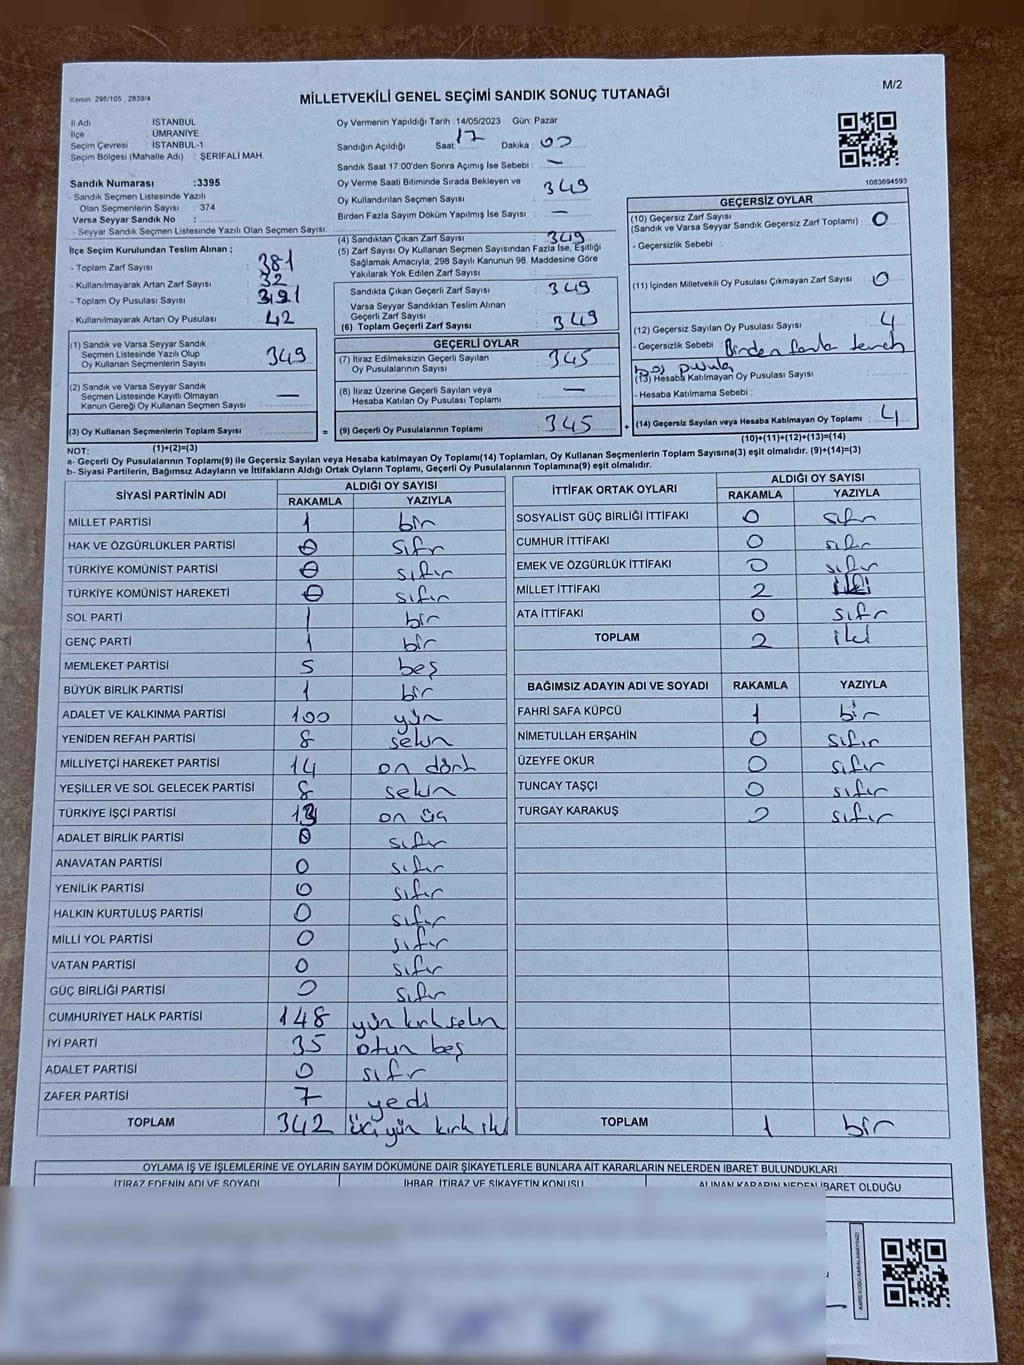 Kanun: 298/105 , 2839/4
MİLLETVEKİLİ GENEL SEÇİMİ SANDIK SONUÇ TUTANAĞI
M/2
İl Adı : İSTANBUL
İlçe : ÜMRANİYE
Seçim Çevresi : İSTANBUL-1
Seçim Bölgesi (Mahalle Adı) : ŞERİFALİ MAH.
Sandık Numarası :3395
- Sandık Seçmen Listesinde Yazılı
Olan Seçmenlerin Sayısı : 374
Varsa Seyyar Sandık No :
- Seyyar Sandık Listesinde Yazılı Olan Seçmen Sayısı:
İlçe Seçim Kurulundan Teslim Alınan ;
- Toplam Zarf Sayısı : 381
- Kullanılmayarak Artan Zarf Sayısı : 32
- Toplam Oy Pusulası Sayısı : 391
- Kullanılmayarak Artan Oy Pusulası : 42
(1) Sandık ve Varsa Seyyar Sandık
Seçmen Listesinde Yazılı Olup
Oy Kullanan Seçmenlerin Sayısı : 349
(2) Sandık ve Varsa Seyyar Sandık
Seçmen Listesinde Kayıtlı Olmayan
Kanun Gereği Oy Kullanan Seçmen Sayısı : —
(3) Oy Kullanan Seçmenlerin Toplam Sayısı :
(1)+(2)=(3)
Oy Vermenin Yapıldığı Tarih :14/05/2023 Gün: Pazar
Sandığın Açıldığı Saat: 17 Dakika : 00
Sandık Saat 17:00'den Sonra Açımış İse Sebebi : —
Oy Verme Saati Bitiminde Sırada Bekleyen ve
Oy Kullandırılan Seçmen Sayısı : 349
Birden Fazla Sayım Döküm Yapılmış İse Sayısı : —
(4) Sandıktan Çıkan Zarf Sayısı : 349
(5) Zarf Sayısı Oy Kullanan Seçmen Sayısından Fazla İse, Eşitliği
Sağlamak Amacıyla; 298 Sayılı Kanunun 98. Maddesine Göre
Yakılarak Yok Edilen Zarf Sayısı :
Sandıkta Çıkan Geçerli Zarf Sayısı : 349
Varsa Seyyar Sandıktan Teslim Alınan
Geçerli Zarf Sayısı :
(6) Toplam Geçerli Zarf Sayısı : 349
GEÇERLİ OYLAR
(7) İtiraz Edilmeksizin Geçerli Sayılan
Oy Pusulalarının Sayısı : 345
(8) İtiraz Üzerine Geçerli Sayılan veya
Hesaba Katılan Oy Pusulası Toplamı : —
= (9) Geçerli Oy Pusulalarının Toplamı : 345
1083694593
GEÇERSİZ OYLAR
(10) Geçersiz Zarf Sayısı
(Sandık ve Varsa Seyyar Sandık Geçersiz Zarf Toplamı) : 0
- Geçersizlik Sebebi :
(11) İçinden Milletvekili Oy Pusulası Çıkmayan Zarf Sayısı : 0
(12) Geçersiz Sayılan Oy Pusulası Sayısı : 4
- Geçersizlik Sebebi : Birden fazla tercih
boş pusula
(13) Hesaba Katılmayan Oy Pusulası Sayısı :
- Hesaba Katılmama Sebebi :
+ (14) Geçersiz Sayılan veya Hesaba Katılmayan Oy Toplamı : 4
(10)+(11)+(12)+(13)=(14)
NOT:
a- Geçerli Oy Pusulalarının Toplamı(9) ile Geçersiz Sayılan veya Hesaba Katılmayan Oy Toplamı(14) Toplamları, Oy Kullanan Seçmenlerin Toplam Sayısına(3) eşit olmalıdır. (9)+(14)=(3)
b- Siyasi Partilerin, Bağımsız Adayların ve İttifakların Aldığı Ortak Oyların Toplamı, Geçerli Oy Pusulalarının Toplamına(9) eşit olmalıdır.
SİYASİ PARTİNİN ADI ALDIĞI OY SAYISI
RAKAMLA YAZIYLA
MİLLET PARTİSİ 1 bir
HAK VE ÖZGÜRLÜKLER PARTİSİ 0 sıfır
TÜRKİYE KOMÜNİST PARTİSİ 0 sıfır
TÜRKİYE KOMÜNİST HAREKETİ 0 sıfır
SOL PARTİ 1 bir
GENÇ PARTİ 1 bir
MEMLEKET PARTİSİ 5 beş
BÜYÜK BİRLİK PARTİSİ 1 bir
ADALET VE KALKINMA PARTİSİ 100 yüz
YENİDEN REFAH PARTİSİ 8 sekiz
MİLLİYETÇİ HAREKET PARTİSİ 14 on dört
YEŞİLLER VE SOL GELECEK PARTİSİ 8 sekiz
TÜRKİYE İŞÇİ PARTİSİ 13 on üç
ADALET BİRLİK PARTİSİ 0 sıfır
ANAVATAN PARTİSİ 0 sıfır
YENİLİK PARTİSİ 0 sıfır
HALKIN KURTULUŞ PARTİSİ 0 sıfır
MİLLİ YOL PARTİSİ 0 sıfır
VATAN PARTİSİ 0 sıfır
GÜÇ BİRLİĞİ PARTİSİ 0 sıfır
CUMHURİYET HALK PARTİSİ 148 yüz kırk sekiz
İYİ PARTİ 35 otuz beş
ADALET PARTİSİ 0 sıfır
ZAFER PARTİSİ 7 yedi
TOPLAM 342 üç yüz kırk iki
İTTİFAK ORTAK OYLARI ALDIĞI OY SAYISI
RAKAMLA YAZIYLA
SOSYALİST GÜÇ BİRLİĞİ İTTİFAKI 0 sıfır
CUMHUR İTTİFAKI 0 sıfır
EMEK VE ÖZGÜRLÜK İTTİFAKI 0 sıfır
MİLLET İTTİFAKI 2 iki
ATA İTTİFAKI 0 sıfır
TOPLAM 2 iki
BAĞIMSIZ ADAYIN ADI VE SOYADI RAKAMLA YAZIYLA
FAHRİ SAFA KÜPCÜ 1 bir
NİMETULLAH ERŞAHİN 0 sıfır
ÜZEYFE OKUR 0 sıfır
TUNCAY TAŞÇI 0 sıfır
TURGAY KARAKUŞ 0 sıfır
TOPLAM 1 bir
OYLAMA İŞ VE İŞLEMLERİNE VE OYLARIN SAYIM DÖKÜMÜNE DAİR ŞİKAYETLERLE BUNLARA AİT KARARLARIN NELERDEN İBARET BULUNDUKLARI
İTİRAZ EDENİN ADI VE SOYADI İHBAR, İTİRAZ VE ŞİKAYETİN KONUSU ALINAN KARARIN NEDEN İBARET OLDUĞU
KAREKODU KARALAMAYINIZ!